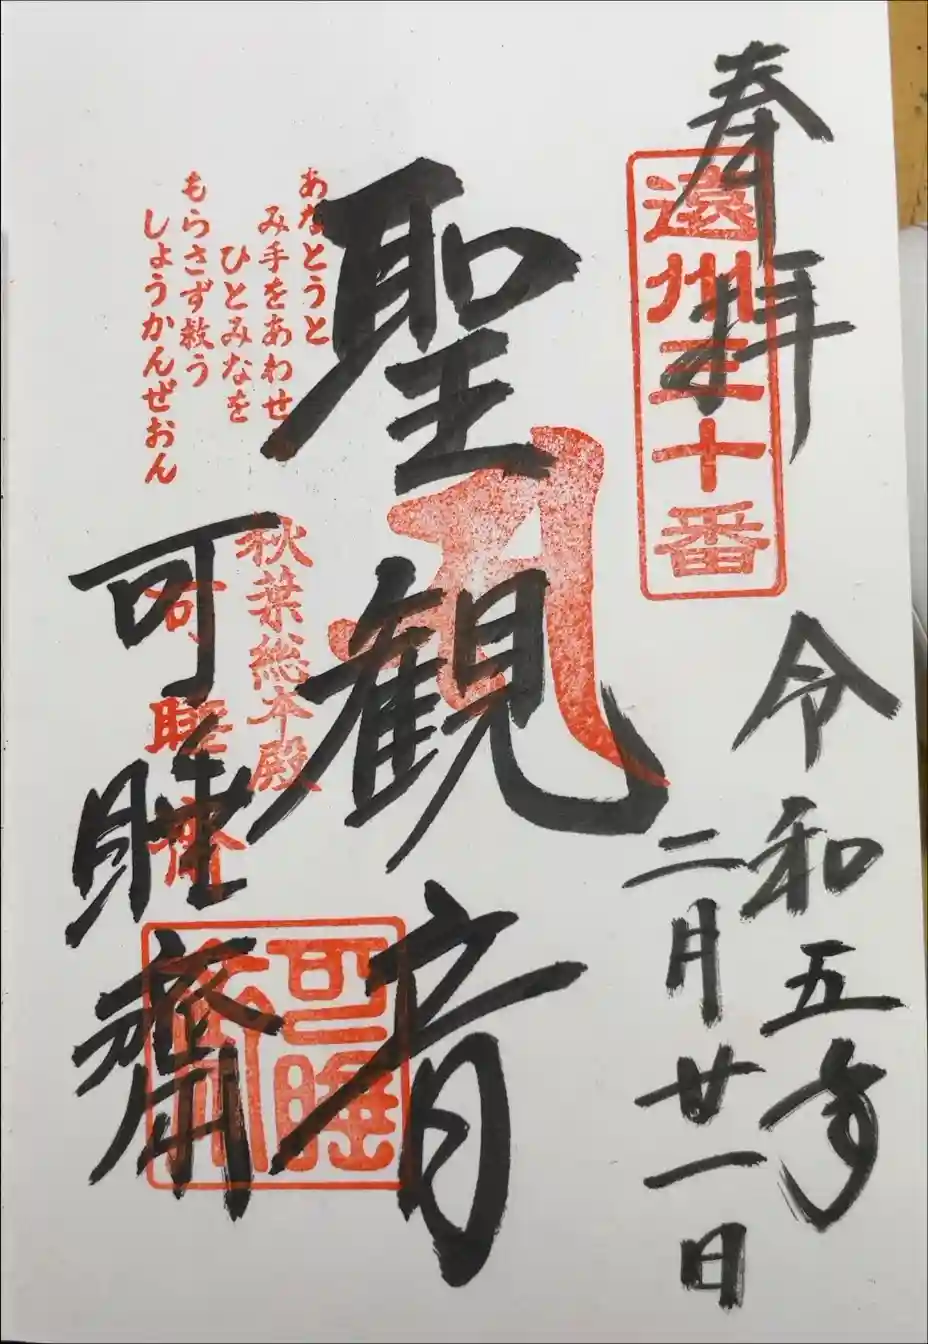 奉拝
遠州三十番
令和五年
二月廿一日
聖観音
あなとうと
み手をあわせ
ひとみなを
もらさず救う
しょうかんぜおん
秋葉総本殿
可睡斎
可睡齋
可睡齋